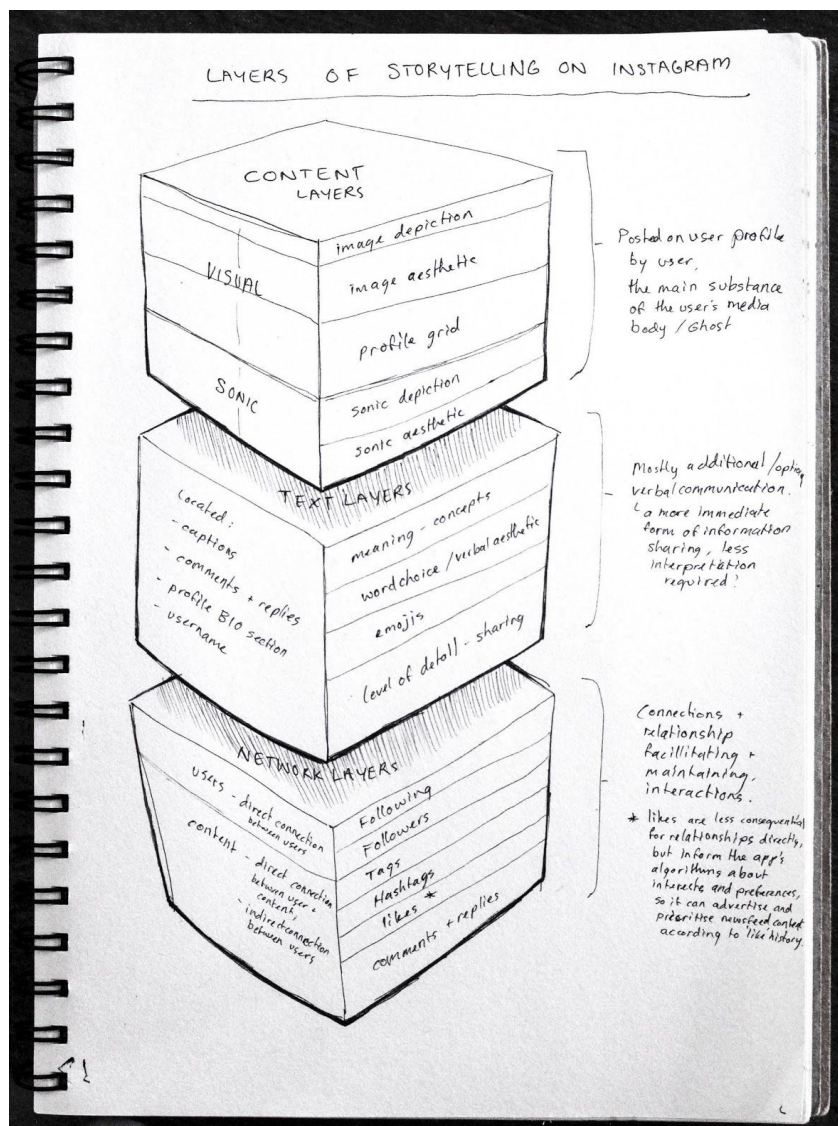 LAYERS OF STORYTELLING ON INSTAGRAM
CONTENT
LAYERS
VISUAL
SONIC
image depiction
image aesthetic
profile grid
sonic depiction
sonic aesthetic
Posted on user profile
by user,
the main substance
of the user's media
body / Ghost
TEXT LAYERS
Located:
- captions
- comments + replies
- profile BIO section
- username
meaning - concepts
word choice / verbal aesthetic
emojis
level of detail - sharing
Mostly additional /
verbal communication.
a more immediate
form of information
sharing, less
interpretation
required?
NETWORK LAYERS
users - direct connection
between users
content - direct connection
between user +
content,
- indirect connection
between users
Following
Followers
Tags
Hashtags
likes *
comments + replies
Connections +
relationship
facillitating +
maintaining,
interactions.
* likes are less consequential
for relationships directly,
but inform the app's
algorithms about
interests and preferences,
so it can advertise and
prioritise newsfeed content
according to 'like' history.